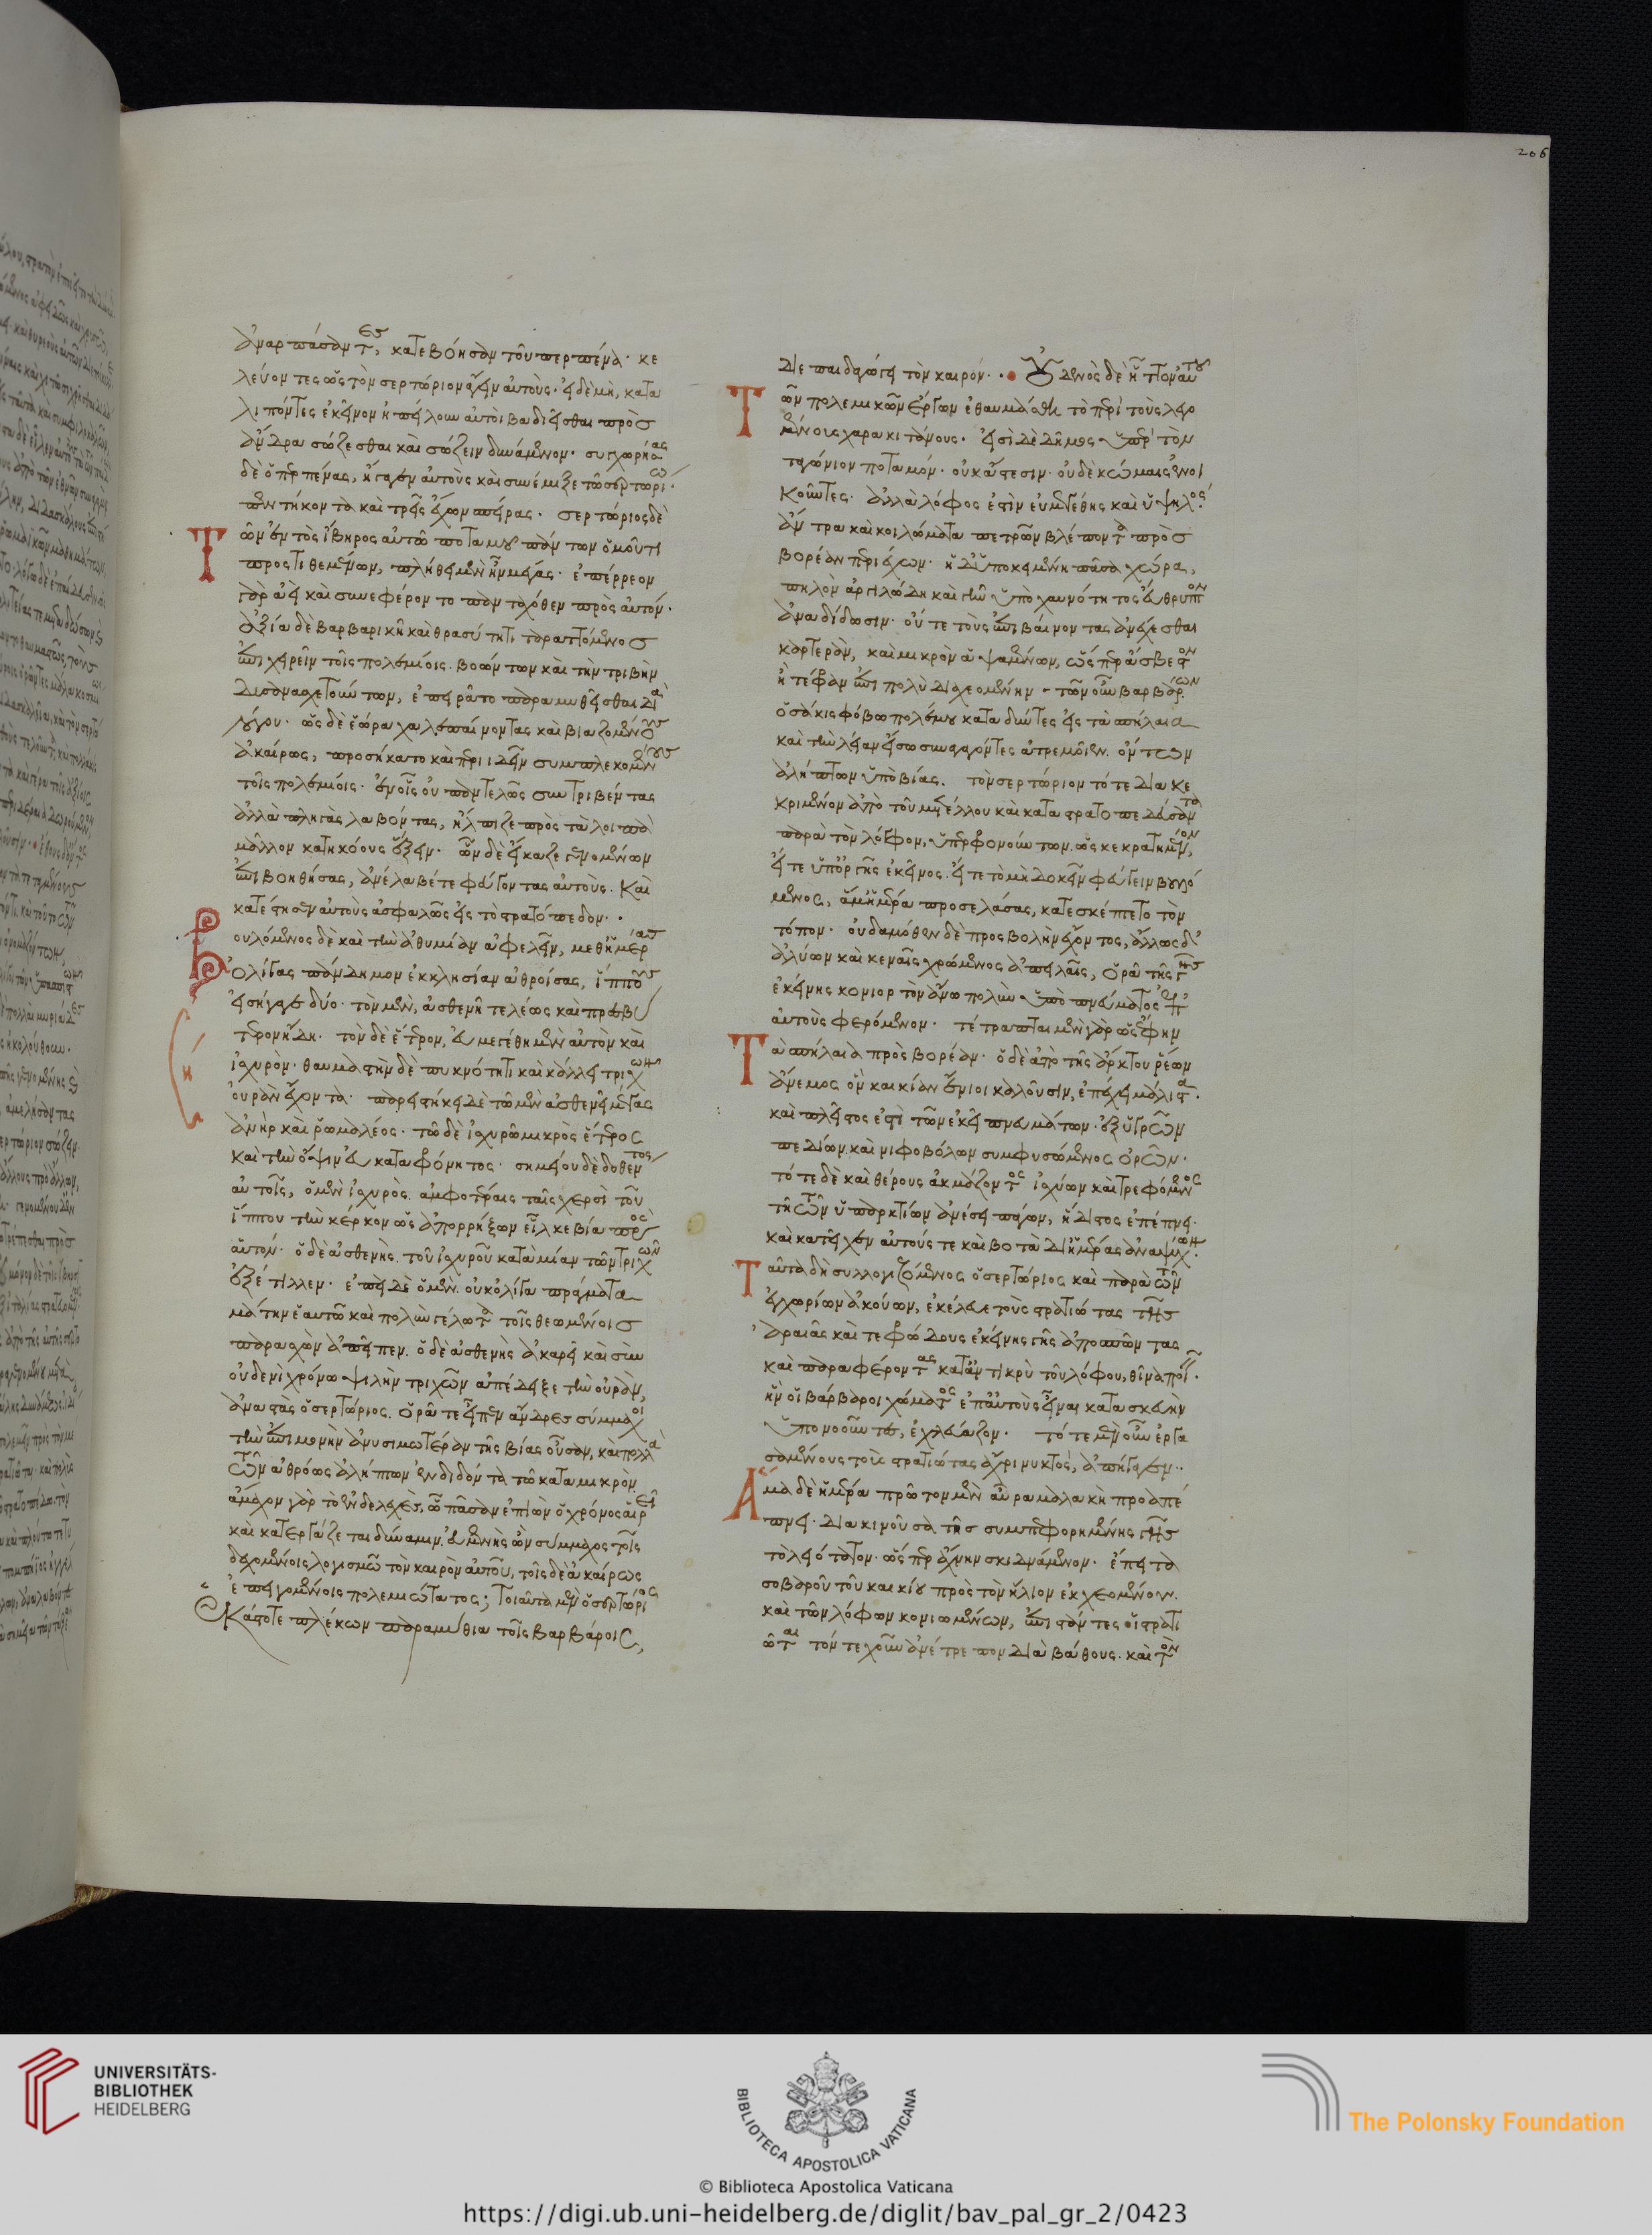 206
ἀναρπάσαντες, κατεβόησαν τοῦ περπέννα· κε
λεύοντες ὡς τὸν σερτώριον ἄγειν αὐτούς· εἰ δὲ μὴ, κατα
λιπόντες ἐκεῖνον ἠπείλουν αὐτοὶ βαδιεῖσθαι πρὸς
ἄνδρα σώζεσθαι καὶ σώζειν δυνάμενον· συγχωρήσας
δὲ ὁ περπένας, ἤγαγεν αὐτοὺς καὶ συνέμιξε τῶ σερτωρίω
πεντήκοντα καὶ τρεῖς ἔχων σπείρας. σερτώριος δὲ
Τῶν ἐντὸς ἴβηρος αὐτῶ ποταμοῦ πάντων ὁμοῦ τι
προστιθεμένων, πλήθει μὲν ἦν μέγας· ἐπέρρεον
γὰρ ἀεὶ καὶ συνεφέροντο πανταχόθεν πρὸς αὐτόν·
ἀξία δὲ βαρβαρικῆ καὶ θρασύτητι ταραττόμενος
ἐπιχειρεῖν τοῖς πολεμίοις. βοώντων καὶ τὴν τριβὴν
δυσανασχετούντων, ἐπειρᾶτο παραμυθεῖσθαι διὰ
λόγου· ὡς δὲ ἑώρα χαλεπαίνοντας καὶ βιαζομένους
ἀκαίρως, προσήκατο καὶ περιιδεῖν συμπλεκομένους
τοῖς πολεμίοις· ἐν οἷς οὐ παντελῶς συντριβέντας
ἀλλὰ πληγὰς λαβόντας, ἤλπιζε πρὸς τὰ λοιπὰ
μᾶλλον κατηκόους ἕξειν· ὧν δὲ εἴκαζε γενομένων
ἐπιβοηθήσας, ἀνέλαβέ τε φεύγοντας αὐτούς. Καὶ
κατέστησεν αὐτοὺς ἀσφαλῶς εἰς τὸ στρατόπεδον·
Βουλόμενος δὲ καὶ τὴν ἀθυμίαν ἀφελεῖν, μεθημέρας
ὀλίγας πάνδημον ἐκκλησίαν ἀθροίσας, ἵππους
εἰσήγαγε δύο· τὸν μὲν, ἀσθενῆ τελέως καὶ πρεσβύ
τερον ἤδη· τὸν δὲ ἕτερον, εὐμεγέθη μὲν αὐτὸν καὶ
ἰσχυρόν· θαυμαστὴν δὲ πυκνότητι καὶ κάλλει τριχῶν
οὐρὰν ἔχοντα· παρειστήκει δὲ τῶ μὲν ἀσθενεῖ μέγας
ἀνὴρ καὶ ῥωμαλέος· τῶ δὲ ἰσχυρῶ μικρὸς ἕτερος
καὶ τὴν ὄψιν εὐκαταφρόνητος· σημείου δὲ δοθέντος
αὐτοῖς, ὁ μὲν ἰσχυρὸς. ἀμφοτέραις ταῖς χερσὶ τοῦ
ἵππου τὴν κέρκον ὡς ἀπορρήξων εἷλκε βία πρὸς
αὑτόν· ὁ δὲ ἀσθενής. τοῦ ἰσχυροῦ κατὰ μίαν τῶν τριχῶν
ἐξέτιλλεν· ἐπεὶ δὲ ὁ μὲν. οὐκ ὀλίγα πράγματα
μάτην ἑαυτῶ καὶ πολὺν γέλωτα τοῖς θεωμένοις
παρασχὼν ἀπεῖπεν. ὁ δὲ ἀσθενὴς ἀκαρεῖ καὶ σὺν
οὐδενὶ χρόνω ψιλὴν τριχῶν ἀπέδειξε τὴν οὐράν,
ἀναστὰς ὁ σερτώριος. ὁρᾶτε εἶπεν ἄνδρες σύμμαχοι
τὴν ἐπιμονὴν ἀνυσιμωτέραν τῆς βίας οὖσαν, καὶ πολλὰ
τῶν ἀθρόως ἀλήπτων ἐνδιδόντα τῶ κατὰ μικρόν·
ἄμαχον γὰρ τὸ ἐνδελεχές, ὧ πᾶσαν ἐπιὼν ὁ χρόνος αἱρεῖ
καὶ κατεργάζεται δύναμιν. εὐμενὴς ὢν σύμμαχος τοῖς
δεχομένοις λογισμῶ τὸν καιρὸν αὐτοῦ, τοῖς δὲ ἀκαίρως
ἐπειγομένοις πολεμιώτατος; Τοιαῦτα μὲν ὁ σερτώριος
ἑκάστοτε πλέκων παραμύθια τοῖς βαρβάροις,
διεπαιδαγώγει τὸν καιρόν. Οὐδενὸς δὲ ἧττον αὐτοῦ
Τῶν πολεμικῶν ἔργων ἐθαυμάσθη τὸ περὶ τοὺς λεγο
μένους χαρακιτάνους. εἰσὶ δὲ δῆμος ὑπὲρ τὸν
ταγώνιον ποταμόν· οὐκ ἄστεσιν· οὐδὲ κώμαις ἐνοι
κοῦντες· ἀλλὰ λόφος ἐστὶν εὐμεγέθης καὶ ὑψηλός
ἄντρα καὶ κοιλώματα πετρῶν βλέποντα πρὸς
βορέαν περιέχων· ἡ δ' ὑποκειμένη πᾶσα χώρα,
πηλὸν ἀργιλώδη καὶ γῆν ὑπὸ χαυνότητος εὔθρυπτον
ἀναδίδωσιν· οὔτε τοὺς ἐπιβαίνοντας ἀνέχεσθαι
καρτεράν, καὶ μικρὸν ἁψαμένων, ὥσπερ ἄσβεστον
ἢ τέφραν ἐπὶ πολὺ διαχεομένην τῶν οὖν βαρβάρων
ὁσάκις φόβω πολέμου καταδύντες εἰς τὰ σπήλαια
καὶ τὴν λείαν εἴσω συναγαγόντες ἀτρεμοῖεν. ὄντων
ἀλήπτων ὑπὸ βίας. τὸν σερτώριον τότε διακε
κριμένον ἀπὸ τοῦ μετέλλου καὶ καταστρατοπεδεύσαντα
παρὰ τὸν λόφον, ὑπερφρονούντων. ὡς κεκρατημένον,
εἴτε ὑπ' ὀργῆς ἐκεῖνος. εἴτε τὸ μὴ δοκεῖν φεύγειν βουλό
μενος, ἅμ' ἡμέρα προσελάσας, κατεσκέπτετο τὸν
τόπον· οὐδαμόθεν δὲ προσβολὴν ἔχοντος, ἄλλως δ'
ἀλύων καὶ κεναῖς χρώμενος ἀπειλαῖς, ὁρᾶ τῆς γῆς
ἐκείνης κονιορτὸν ἄνω πολὺν ὑπὸ πνεύματος ἐπ'
αὐτοὺς φερόμενον· τέτραπται μὲν γὰρ ὡς ἔφην
Τὰ σπήλαια πρὸς βορέαν· ὁ δὲ ἀπὸ τῆς ἄρκτου ῥέων
ἄνεμος ὃν καικίαν ἔνιοι καλοῦσιν, ἐπέχει μάλιστα.
καὶ πλεῖστος ἐστὶ τῶν ἐκεῖ πνευμάτων· ἐξ ὑγρῶν
πεδίων, καὶ νιφοβόλων συμφυσώμενος ὀρῶν·
τότε δὲ καὶ θέρους ἀκμάζοντος ἰσχύων καὶ τρεφόμενος
τῆ τῶν ὑπαρκτίων ἀνέσει πάγων, ἥδιστος ἐπέπνει·
καὶ κατεῖχεν αὐτούς τε καὶ βοτὰ δι' ἡμέρας ἀναψύχων.
Ταῦτα δὴ συλλογιζόμενος ὁ σερτώριος καὶ παρὰ τῶν
ἐγχωρίων ἀκούων, ἐκέλευε τοὺς στρατιώτας τῆς
ἀραιᾶς καὶ τεφρώδους ἐκείνης γῆς ἀποσπῶντας
καὶ παραφέροντας καταντικρὺ τοῦ λόφου, θῖνα ποι.
ἣν οἱ βάρβαροι χώματος ἐπ' αὐτοὺς εἶναι κατασκευὴν
ὑπονοοῦντες, ἐχλεύαζον· τότε μὲν οὖν ἐργα
σαμένους τοὺς στρατιώτας ἄχρι νυκτὸς, ἀπήγαγεν.
Ἅμα δὲ ἡμέρα πρῶτον μὲν αὔρα μαλακὴ προσέ
πνει· διακινοῦσα τῆς συμπεφορημένης γῆς
τὸ λειότατον. ὥσπερ ἄχνην σκιδνάμενον· ἔπειτα
σοβαροῦ τοῦ καικίου πρὸς τὸν ἥλιον ἐκχεομένου.
καὶ τῶν λόφων κονιωμένων, ἐπιστάντες οἱ στρατι
ῶται τόν τε χοῦν ἀνέτρεπον διὰ βάθους. καὶ τὸν
UNIVERSITÄTS-
BIBLIOTHEK
HEIDELBERG
BIBLIOTECA APOSTOLICA VATICANA
The Polonsky Foundation
© Biblioteca Apostolica Vaticana
https://digi.ub.uni-heidelberg.de/diglit/bav_pal_gr_2/0423